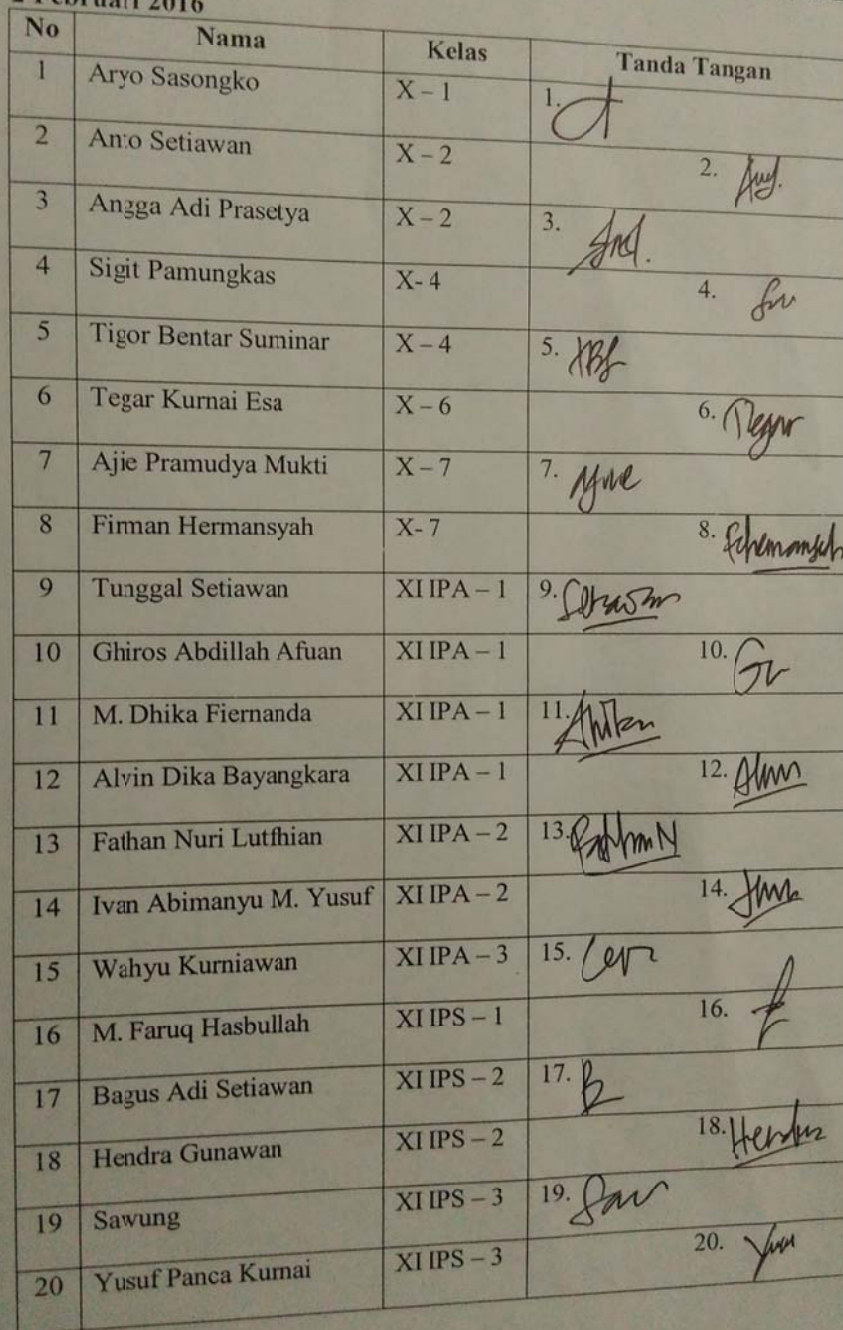 Februari 2016
No Nama Kelas Tanda Tangan
1 Aryo Sasongko X – 1 1.
2 Anto Setiawan X – 2 2.
3 Angga Adi Prasetya X – 2 3.
4 Sigit Pamungkas X- 4 4.
5 Tigor Bentar Suminar X – 4 5. TBS
6 Tegar Kurnai Esa X – 6 6. Tegar
7 Ajie Pramudya Mukti X – 7 7.
8 Firman Hermansyah X- 7 8.
9 Tunggal Setiawan XI IPA – 1 9. Setiawan
10 Ghiros Abdillah Afuan XI IPA – 1 10.
11 M. Dhika Fiernanda XI IPA – 1 11.
12 Alvin Dika Bayangkara XI IPA – 1 12.
13 Fathan Nuri Lutfhian XI IPA – 2 13. Fathan N
14 Ivan Abimanyu M. Yusuf XI IPA – 2 14.
15 Wahyu Kurniawan XI IPA – 3 15.
16 M. Faruq Hasbullah XI IPS – 1 16.
17 Bagus Adi Setiawan XI IPS – 2 17.
18 Hendra Gunawan XI IPS – 2 18. Hendra
19 Sawung XI IPS – 3 19. Saw
20 Yusuf Panca Kurnai XI IPS – 3 20.